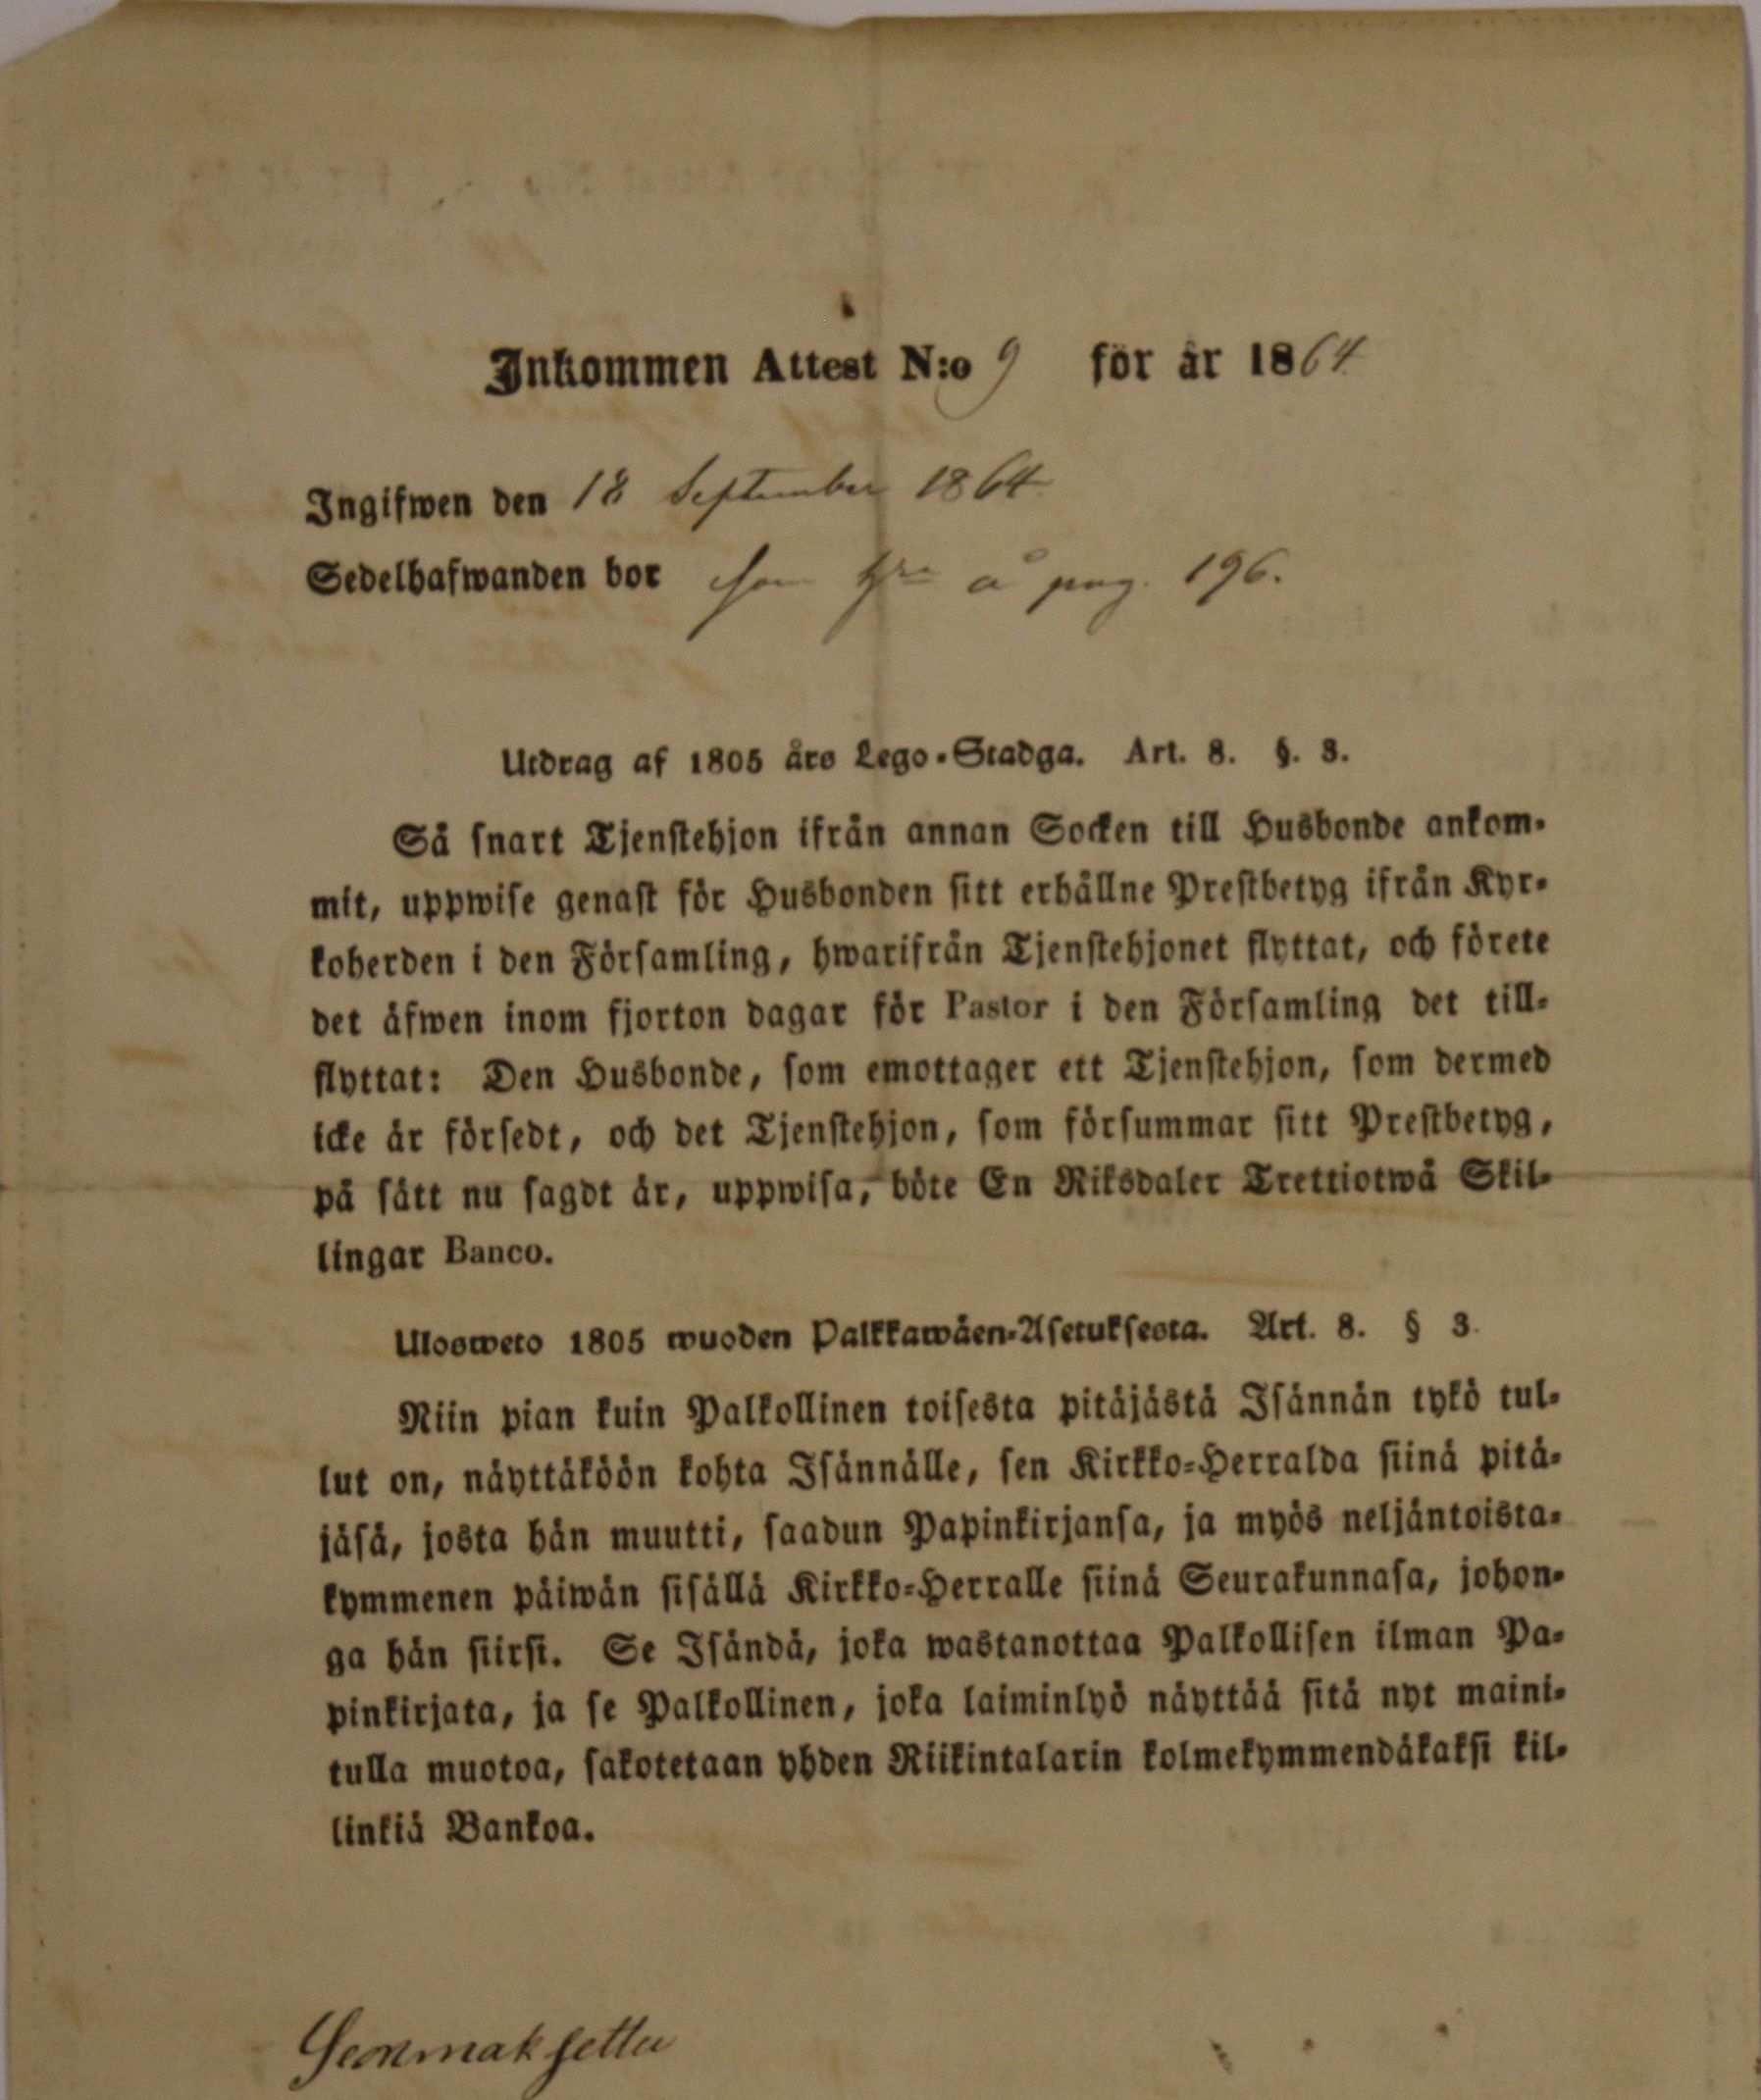 Inkommen Attest N:o 9 för år 1864
Ingifwen den 18 September 1864
Sedelhafwanden bor som å pag. 196.
Utdrag af 1805 års Lego-Stadga. Art. 8. §. 3.
Så snart Tjenstehjon ifrån annan Socken till Husbonde ankom-
mit, uppwise genast för Husbonden sitt erhållne Prestbetyg ifrån Kyr-
koherden i den Församling, hwarifrån Tjenstehjonet flyttat, och förete
det äfwen inom fjorton dagar för Pastor i den Församling det till-
flyttat: Den Husbonde, som emottager ett Tjenstehjon, som dermed
icke är försedt, och det Tjenstehjon, som försummar sitt Prestbetyg,
på sätt nu sagdt är, uppwisa, böte En Riksdaler Trettiotwå Skil-
lingar Banco.
Ulosweto 1805 wuoden Palkkawäen-Asetuksesta. Art. 8. § 3.
Niin pian kuin Palkollinen toisesta pitäjästä Isännän tykö tul-
lut on, näyttäköön kohta Isännälle, sen Kirkko-Herralda siinä pitä-
jäsä, josta hän muutti, saadun Papinkirjansa, ja myös neljäntoista-
kymmenen päiwän sisällä Kirkko-Herralle siinä Seurakunnasa, johon-
ga hän siirsi. Se Isändä, joka wastanottaa Palkollisen ilman Pa-
pinkirjata, ja se Palkollinen, joka laiminlyö näyttää sitä nyt maini-
tulla muotoa, sakotetaan yhden Riikintalarin kolmekymmendäkaksi kil-
linkiä Bankoa.